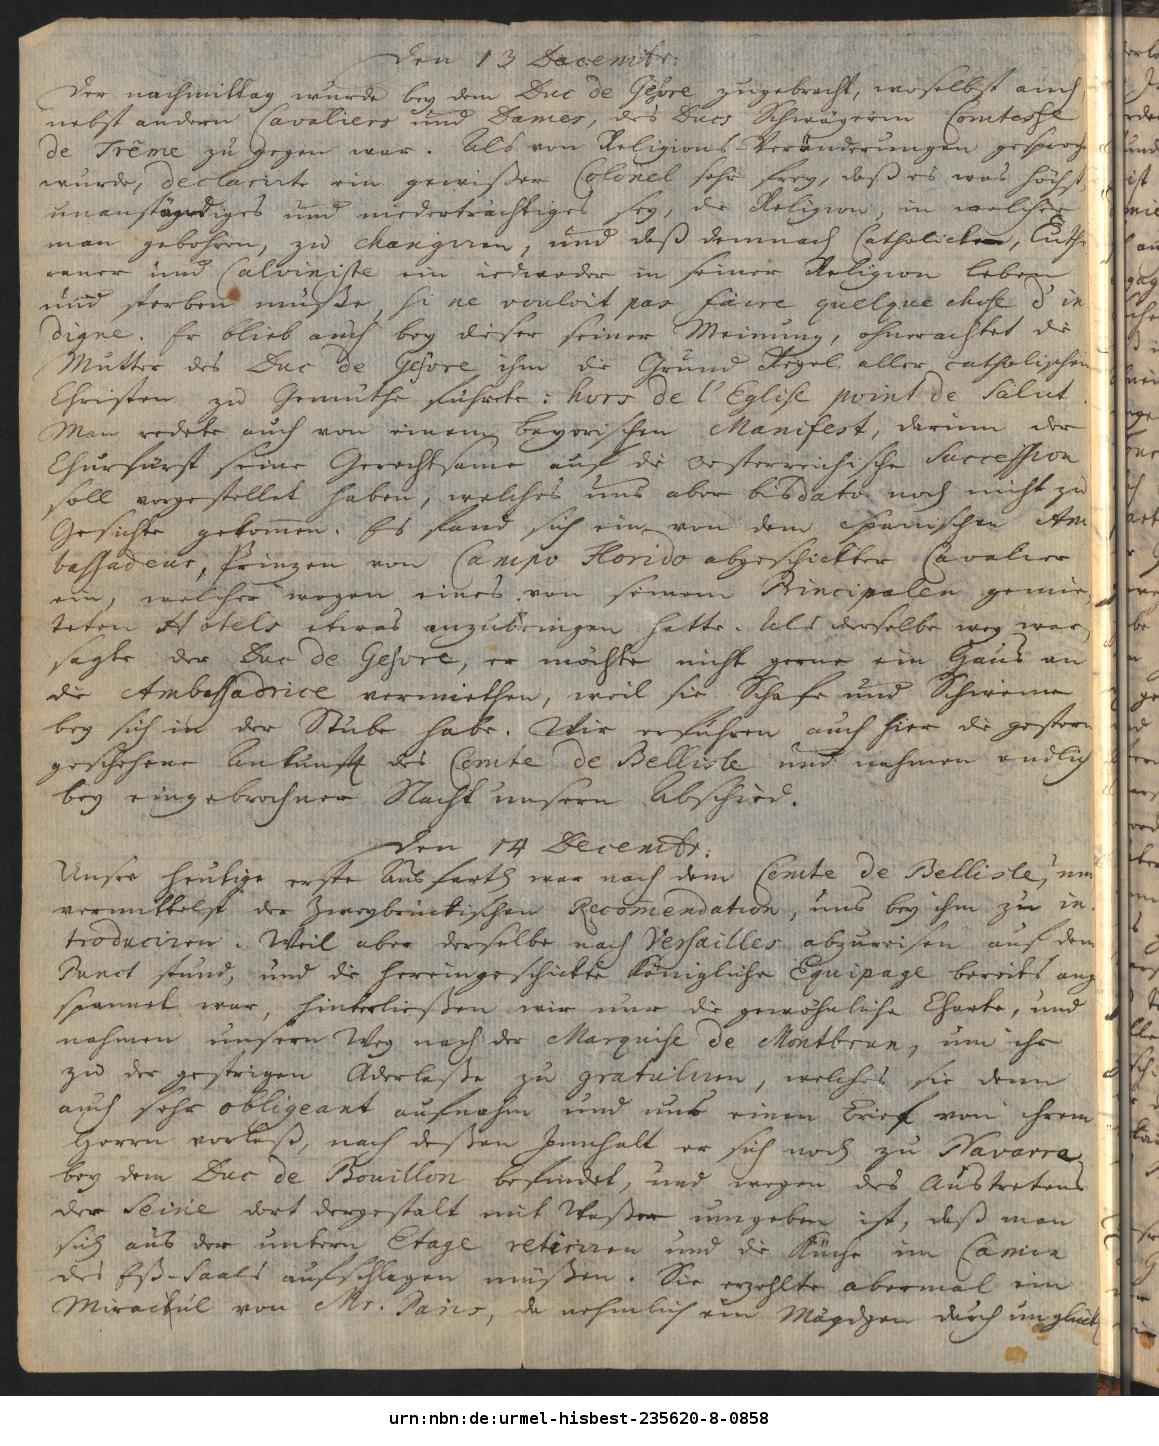 Den 13 Decembr:
Der nachmittag wurde bey dem Duc de Gesvre zugebracht, woselbst auch
nebst andern Cavaliers und Dames, des Ducs Schwägerin Comtesse
de Trême zu gegen war. Als von Religions-Veränderungen gesproche
wurde, declarirte ein gewißer Colonel sehr frey, daß es was höchst
unanständiges und niederträchtiges sey, die Religion, in welcher
man gebohren, zu changiren, und daß demnach Catholicken, Luthe
raner und Calviniste ein iedweder in seiner Religion leben
und sterben müße, si ne vouloit pas faire quelque chose d'in
digne. Er blieb auch bey dieser seiner Meinung, ohnerachtet die
Mutter des Duc de Gesvre ihm die Grund Regel aller catholischen
Christen zu Gemüthe führete: hors de l'Eglise point de Salut.
Man redete auch von einem bayerischen Manifest, darinn der
Churfürst seine Gerechtsame auf die oesterreichische Succession
soll vorgestellet haben, welches uns aber bis dato noch nicht zu
Gesichte gekom̄en. Es fand sich ein von dem spanischen Am
bassadeur, Prinzen von Campo Florido abgeschickter Cavalier
ein, welcher wegen eines von seinem Principalen gemie
teten Hôtels etwas anzubringen hatte. Als derselbe weg war,
sagte der Duc de Gesvre, er möchte nicht gerne ein Haus an
die Ambassadrice vermiethen, weil sie Schafe und Schweine
bey sich in der Stube habe. Wir erfuhren auch hier die gestern
geschehene Ankunfft des Comte de Bellisle und nahmen endlich
bey eingebrochner Nacht unsern Abschied.
Den 14 Decembr:
Unsre heutige erste Ausfarth war nach dem Comte de Bellisle, um
vermittelst der Zweybrückischen Recom̄endation, uns bey ihm zu in
troduciren. Weil aber derselbe nach Versailles abzureisen auf dem
Punct stund, und die hereingeschickte Königliche Equipage bereits ang
spannet war, hinterließen wir nur die gewöhnliche Charte, und
nahmen unsern Weg nach der Marquise de Montbrun, um ihr
zu der gestrigen Aderlaße zu gratuliren, welches sie denn
auch sehr obligeant aufnahm und uns einen Brief von ihrem
Herrn vorlaß, nach deßen Innhalt er sich noch zu Navarra
bey dem Duc de Bouillon befindet, und wegen des Austretens
der Seine dort dergestalt mit Waßer umgeben ist, daß man
sich aus der untern Etage retiriren und die Küche im Camin
des Eß-Saals aufschlagen müßen. Sie erzehlte abermal ein
Miracul von Mr. Paris, da nehmlich ein Mägdgen durch unglück
urn:nbn:de:urmel-hisbest-235620-8-0858